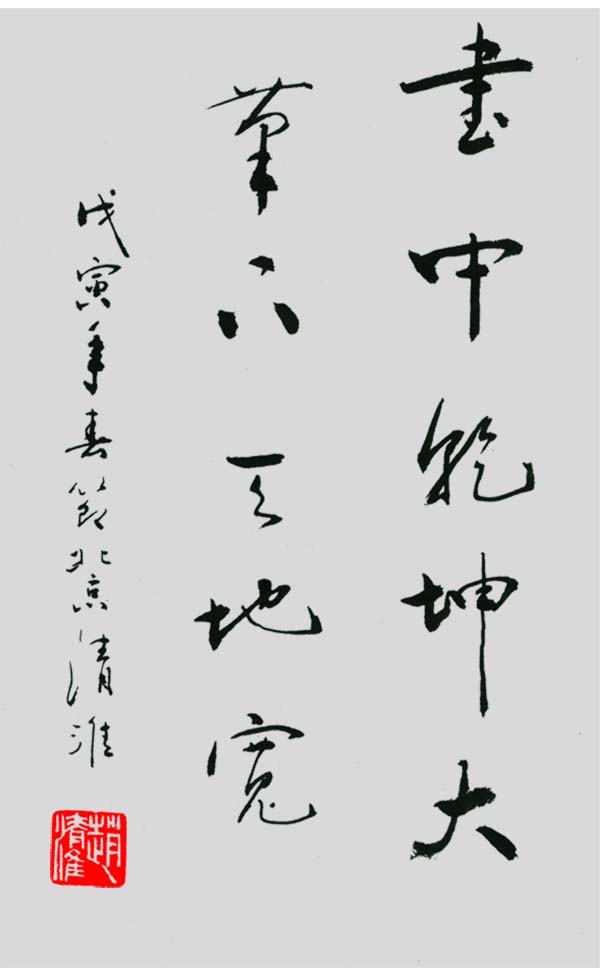 書中乾坤大
筆下天地寬
戊寅年春節北京清淮
趙清淮